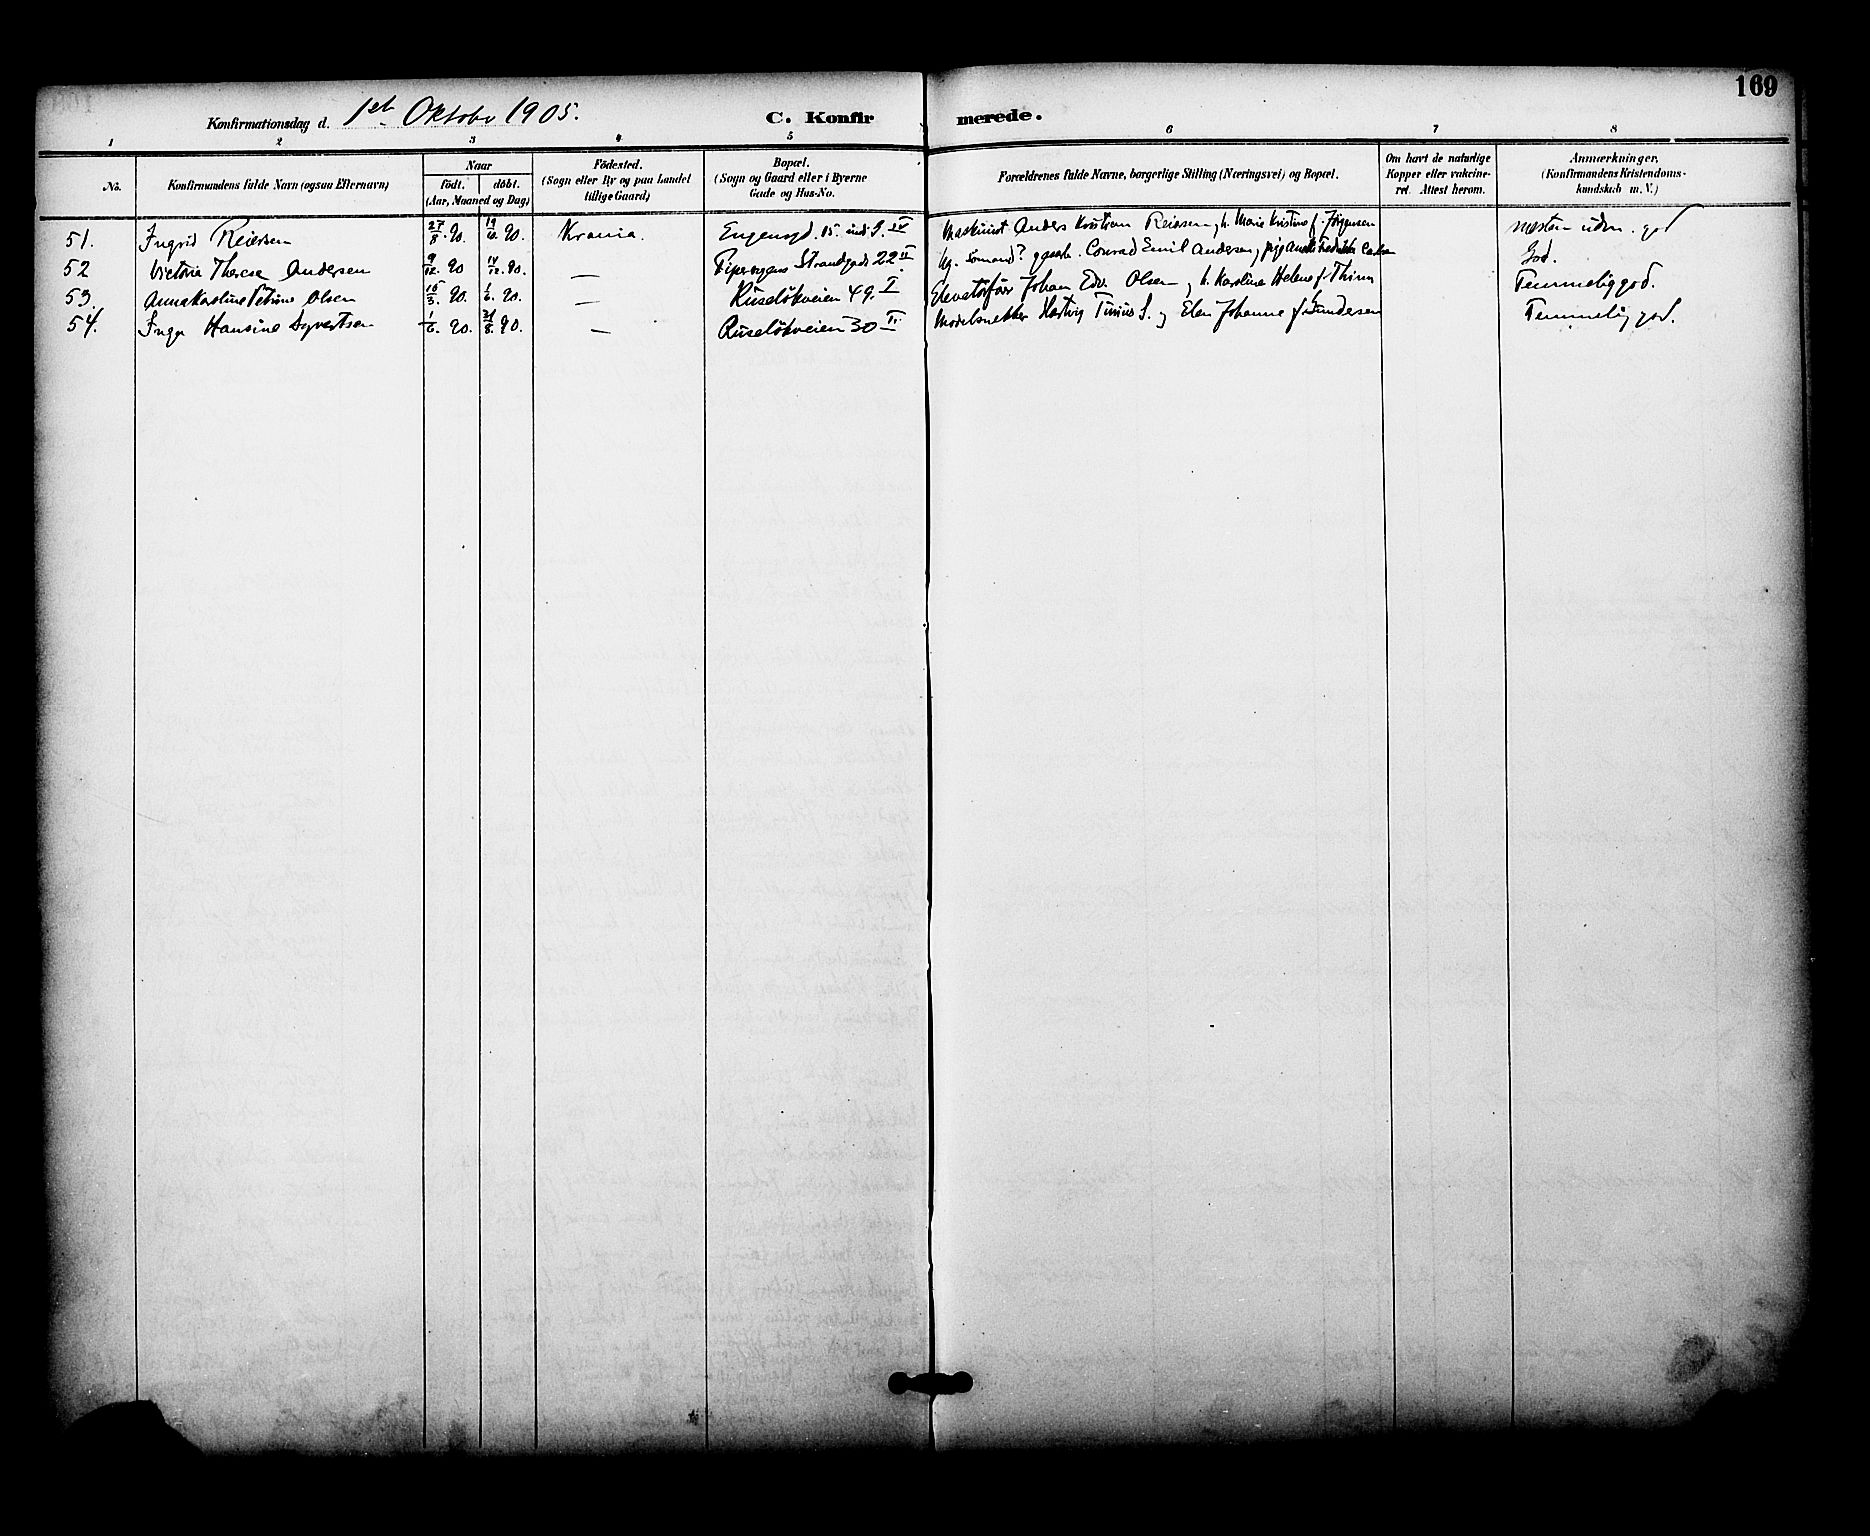 169
Konfirmationsdag d. 1st Oktober 1905. C. Konfirmerede.
1 2 3 4 5 6 7 8
No.
Konfirmandens fulde Navn (ogsaa Efternavn)
Naar
født. døbt.
(Aar, Maaned og Dag)
Fødested.
(Sogn eller By og paa Landet
tillige Gaard)
Bopæl.
(Sogn og Gaard eller i Byerne
Gade og Hus-No.
Forældrenes fulde Navne, borgerlige Stilling (Næringsvei) og Bopæl.
Om havt de naturlige
Kopper eller vakcine-
ret. Attest herom.
Anmærkninger,
(Konfirmandens Kristendoms-
kundskab m. V.)
51. Ingrid Reiersen 27/8. 90. 19/10 90. Krania. Engensgd. 15. IV Maskinist Anders Kristian Reiersen, h. Marie Kristine f. Jørgensen næsten udm. god
52 Victoria Theresa Andersen 9/12. 90 14/12. 90. — Pipervigens Strandgade 22 II Ug. sømand? Conrad Emil Andersen, pige God.
53. Anna Karoline Petrine Olsen 15/3. 90. 1/6. 90. — Ruseløkveien 49. I Johan Edv. Olsen og h. Karoline Helene f. Thinn Temmelig god.
54. Inga Hansine Syvertsen 1/6. 90. 31/8. 90. — Ruseløkveien 30 II Modelsnekker Hartvig Tinius S. og Elen Johanne f. Gundersen Temmelig god.